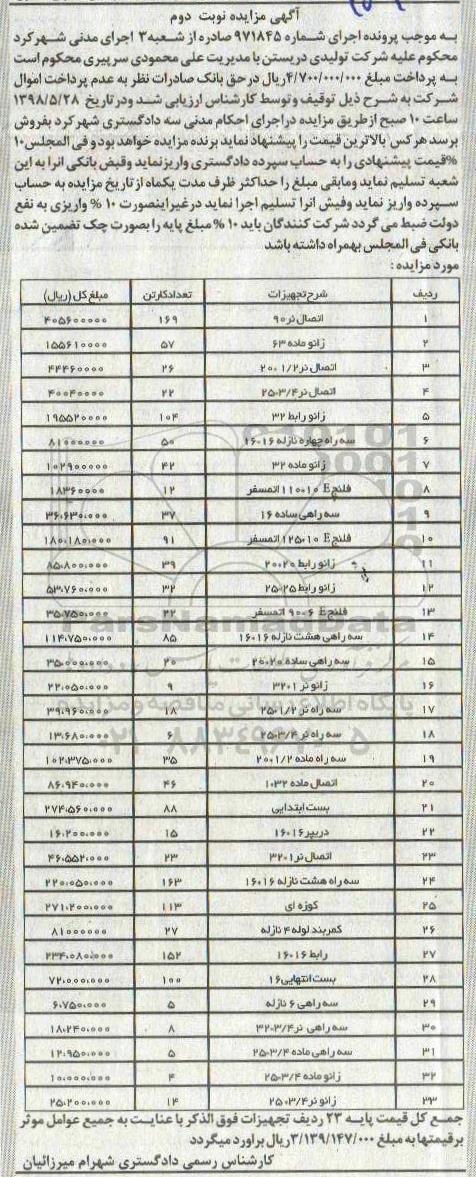 آگهی مزایده نوبت دوم
به موجب پرونده اجرای شماره ۹۷۱۸۴۵ صادره از شعبه۳ اجرای مدنی شهرکرد
محکوم علیه شرکت تولیدی دریستن با مدیریت علی محمودی سرپیری محکوم است
به پرداخت مبلغ ۴/۷۰۰/۰۰۰/۰۰۰ریال درحق بانک صادرات نظر به عدم پرداخت اموال
شرکت به شرح ذیل توقیف وتوسط کارشناس ارزیابی شد ودر تاریخ ۱۳۹۸/۵/۲۸
ساعت ۱۰ صبح ازطریق مزایده دراجرای احکام مدنی سه دادگستری شهرکرد بفروش
برسد هرکس بالاترین قیمت را پیشنهاد نماید برنده مزایده خواهد بود و فی المجلس۱۰
%قیمت پیشنهادی را به حساب سپرده دادگستری واریز نماید وقبض بانکی انرا به این
شعبه تسلیم نماید ومابقی مبلغ را حداکثر ظرف مدت یکماه از تاریخ مزایده به حساب
سپرده واریز نماید وفیش انرا تسلیم اجرا نماید درغیراینصورت ۱۰ % واریزی به نفع
دولت ضبط می گردد شرکت کنندگان باید ۱۰ %مبلغ پایه را بصورت چک تضمین شده
بانکی فی المجلس بهمراه داشته باشد
مورد مزایده :
ردیف شرح تجهیزات تعدادکارتن مبلغ کل (ریال)
۱ اتصال نر۹۰ ۱۶۹ ۴۰۵۶۰۰۰۰۰
۲ زانو ماده ۶۳ ۵۷ ۱۵۵۶۱۰۰۰۰
۳ اتصال نر۱/۲ ۲۰۰ ۲۶ ۴۴۴۶۰۰۰۰
۴ اتصال نر۳/۴-۲۵ ۲۲ ۴۰۰۴۰۰۰۰
۵ زانو رابط ۳۲ ۱۰۴ ۱۹۵۵۲۰۰۰۰
۶ سه راه چهاره نازله ۱۶۰۱۶ ۵۰ ۸۱۰۰۰۰۰۰
۷ زانو ماده ۳۲ ۴۲ ۱۰۲۹۰۰۰۰۰
۸ فلنج E ۱۱۰۰۱۰ اتمسفر ۱۲ ۱۸۳۶۰۰۰۰
۹ سه راهی ساده ۱۶ ۳۷ ۳۶،۶۳۰،۰۰۰
۱۰ فلنج E ۱۲۵،۱۰ اتمسفر ۹۱ ۱۸۰،۱۸۰،۰۰۰
۱۱ زانو رابط ۲۰۰۲۰ ۳۹ ۸۵،۸۰۰،۰۰۰
۱۲ زانو رابط ۲۵۰۲۵ ۳۲ ۵۳،۷۶۰،۰۰۰
۱۳ فلنج E ۹۰۰۶ اتمسفر ۲۲ ۳۵،۷۵۰،۰۰۰
۱۴ سه راهی هشت نازله ۱۶۰۱۶ ۸۵ ۱۱۴،۷۵۰،۰۰۰
۱۵ سه راهی ساده ۲۰۰۲۰ ۲۰ ۳۵،۰۰۰،۰۰۰
۱۶ زانو نر ۳۲۰۱ ۹ ۲۲،۰۵۰،۰۰۰
۱۷ سه راه نر ۲۵۰۱/۲ ۱۸ ۳۹،۹۶۰،۰۰۰
۱۸ سه راه نر ۲۵۰۳/۴ ۶ ۱۳،۶۸۰،۰۰۰
۱۹ سه راه ماده ۲۰۰۱/۲ ۳۵ ۱۰۲،۳۷۵،۰۰۰
۲۰ اتصال ماده ۱۰۳۲ ۴۶ ۸۶،۹۴۰،۰۰۰
۲۱ بست ابتدایی ۸۸ ۲۷۴،۵۶۰،۰۰۰
۲۲ دریپر۱۶۰۱۶ ۱۵ ۱۶،۲۰۰،۰۰۰
۲۳ اتصال نر۳۲۰۱ ۲۳ ۴۶،۵۵۲،۰۰۰
۲۴ سه راه هشت نازله ۱۶۰۱۶ ۱۶۳ ۲۲۰،۰۵۰،۰۰۰
۲۵ کوزه ای ۱۱۳ ۲۷۱،۲۰۰،۰۰۰
۲۶ کمربند لوله ۴ نازله ۲۷ ۸۱۰۰۰۰۰۰
۲۷ رابط ۱۶۰۱۶ ۱۵۲ ۲۳۴،۰۸۰،۰۰۰
۲۸ بست انتهایی۱۶ ۱۰۰ ۷۲،۰۰۰،۰۰۰
۲۹ سه راهی ۶ نازله ۵ ۶،۷۵۰،۰۰۰
۳۰ سه راهی نر۳/۴-۳۲ ۸ ۱۸،۲۴۰،۰۰۰
۳۱ سه راهی ماده ۳/۴-۲۵ ۵ ۱۲،۹۵۰،۰۰۰
۳۲ زانو ماده ۳/۴-۲۵ ۴ ۱۰،۰۰۰،۰۰۰
۳۳ زانو نر۳/۴ ۲۵ ۱۴ ۲۵،۲۰۰،۰۰۰
جمع کل قیمت پایه ۳۳ ردیف تجهیزات فوق الذکر با عنایت به جمیع عوامل موثر
برقیمتها به مبلغ ۳/۱۳۹/۱۴۷/۰۰۰ریال براورد میگردد
کارشناس رسمی دادگستری شهرام میرزائیان
ParsNamadData
پایگاه اطلاع رسانی مناقصه و مزایده
۰۲۱-۸۸۳۴۹۶۷۰-۵